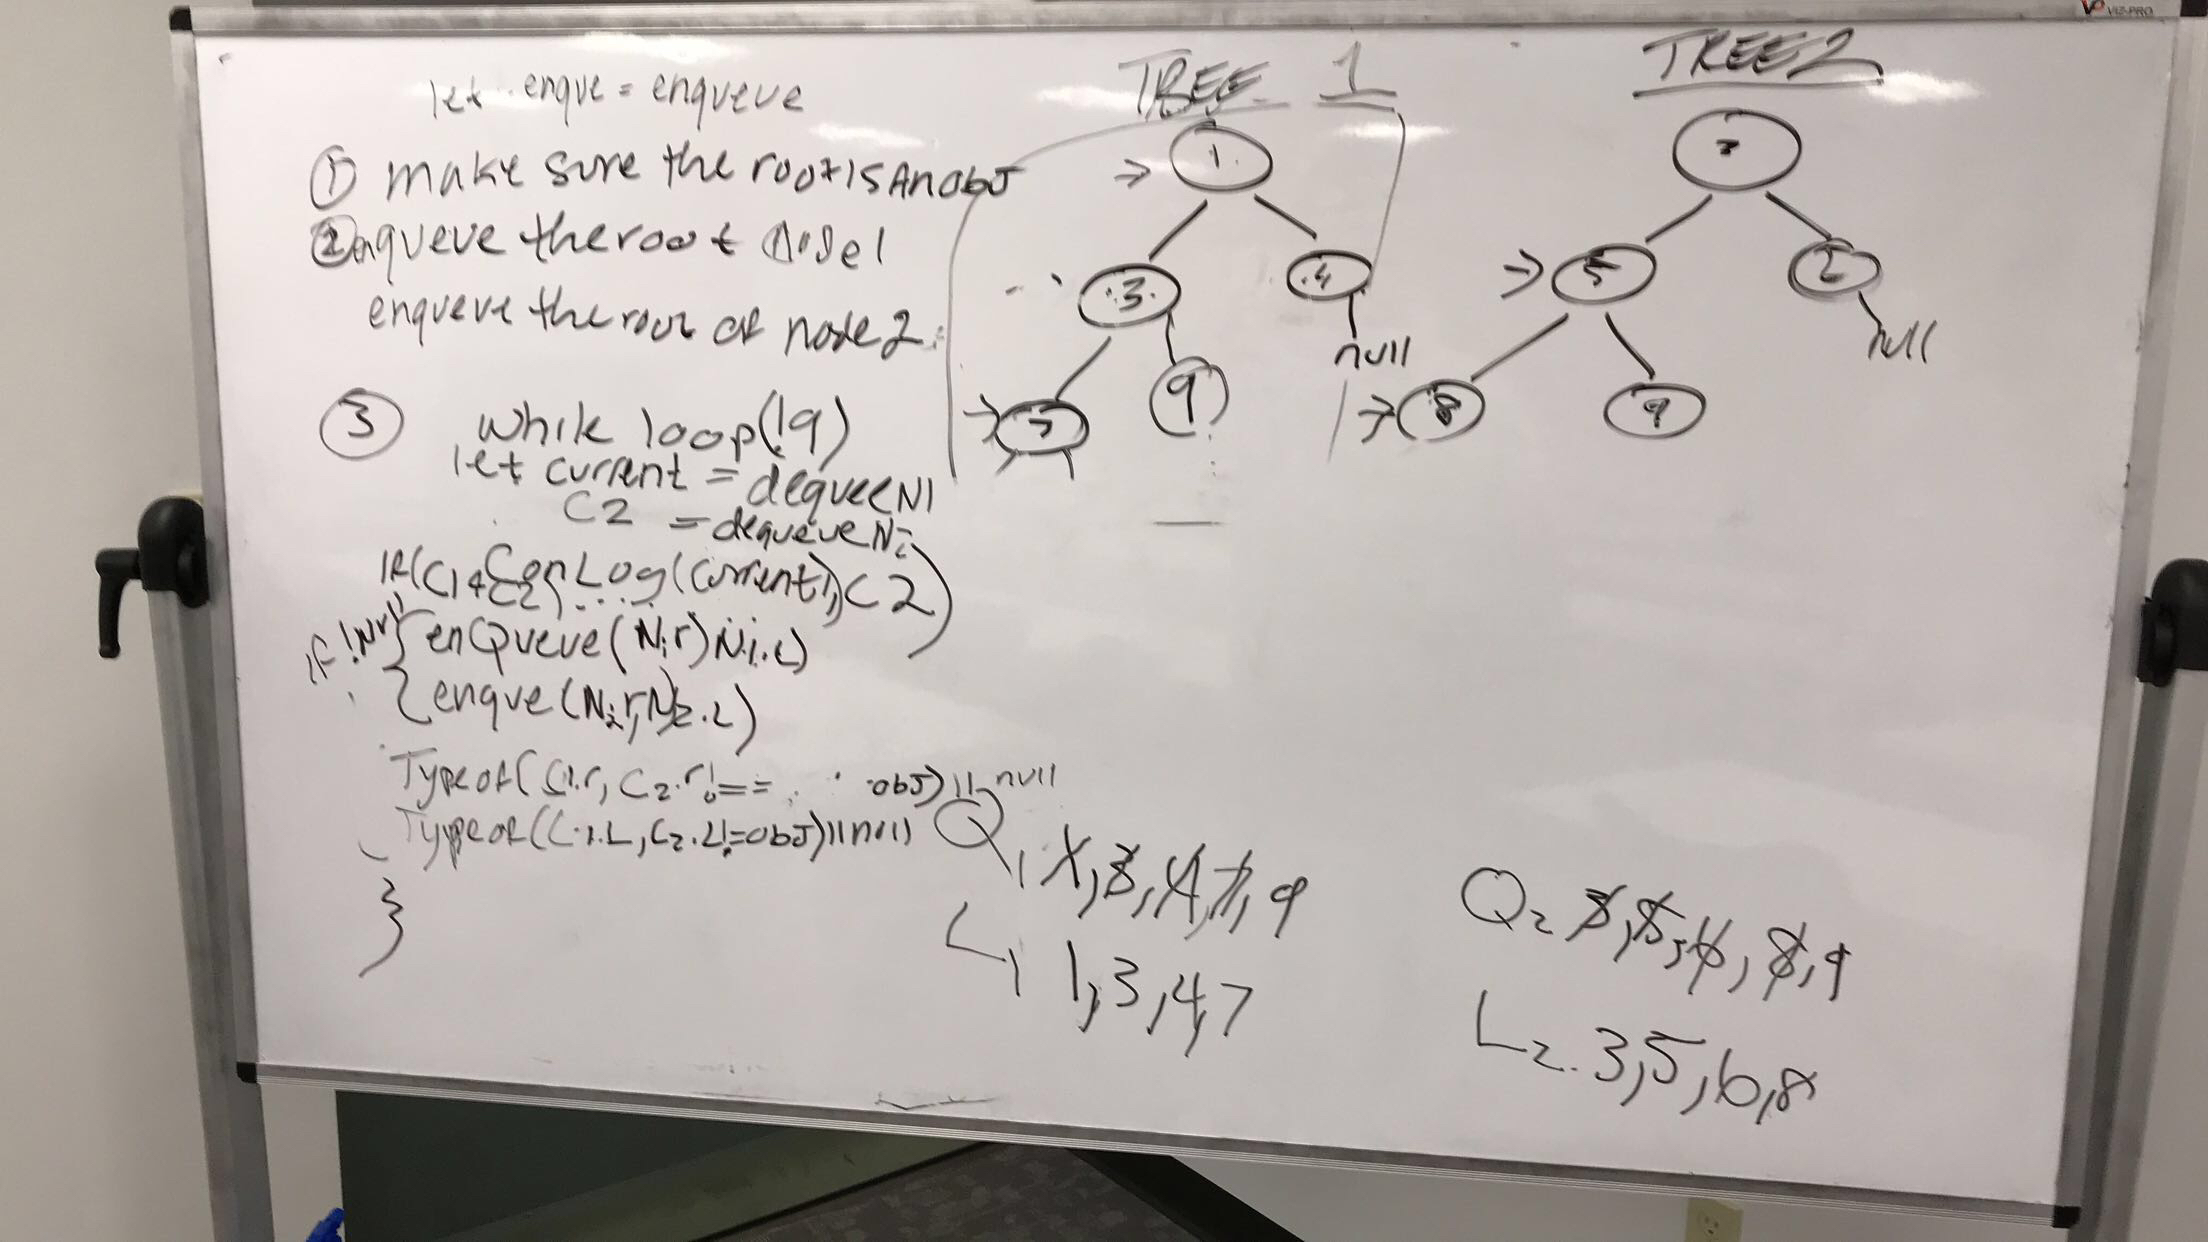 VIZ-PRO
let enque = enqueue
① make sure the root is An obJ
② Enqueue the root Node 1
enqueue the root of node 2
③ while loop(!q)
let current = dequeue N1
C2 = dequeue N2
If(C1 + C2) ConLog(current), C2)
if !Nr {enQueue(N1.r) N1.L)
{enque(N2r, N2.L)
Typeof(C1.r, C2.r !== obJ) || null
Typeof((C1.L, C2.L != obJ) || null)
}
TREE 1
1
3 4
7 9 null
TREE 2
5 2
8 9 null
Q1 1, 3, 4, 7, 9
L1 1, 3, 4, 7
Q2 3, 5, 6, 8, 9
L2. 3, 5, 6, 8